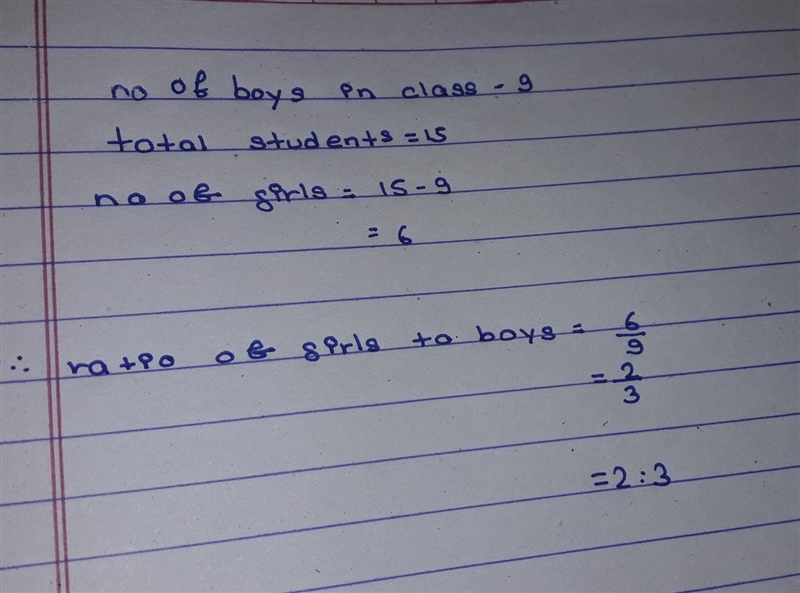 no of boys in class - 9
total students = 15
no of girls = 15 - 9
= 6
∴ ratio of girls to boys = 6/9
= 2/3
= 2 : 3